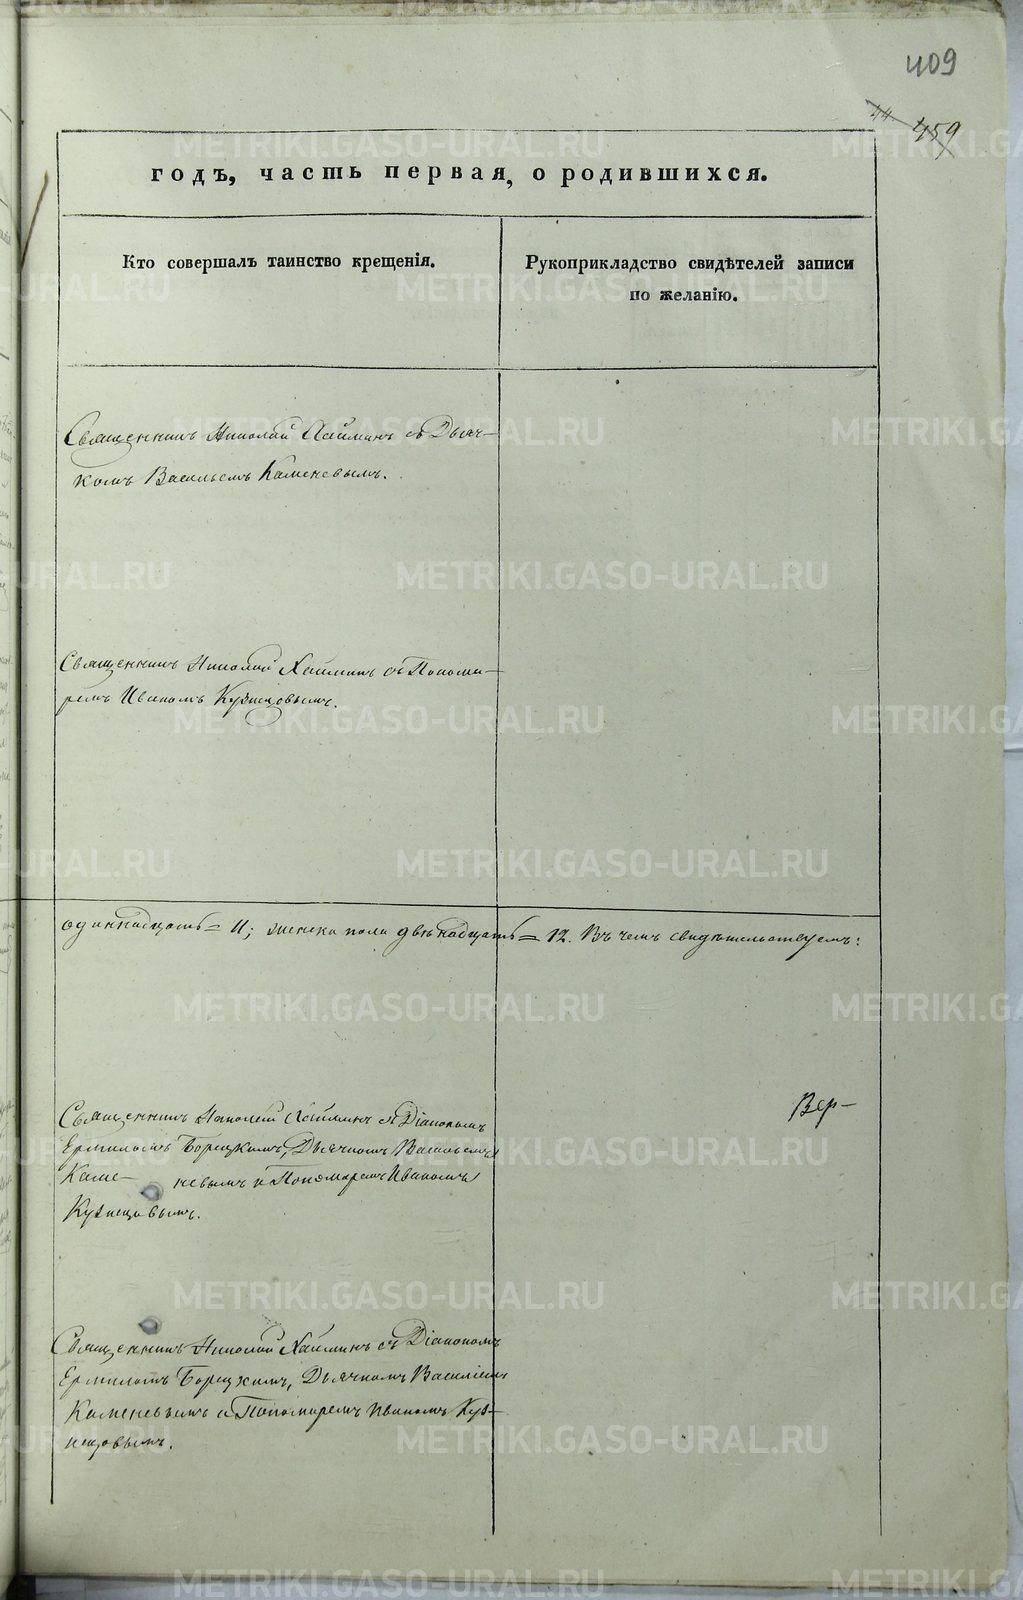 409
44
459
годъ, часть первая, о родившихся.
Кто совершалъ таинство крещенія.
Рукоприкладство свидѣтелей записи
по желанію.
Священникъ Николай Хаймикъ съ Дьяч-
комъ Васильемъ Каменевымъ.
Священникъ Николай Хаймикъ съ Понома-
ремъ Иваномъ Кузнецовымъ.
одиннадцать = 11; женска пола двѣнадцать = 12. Въ чемъ свидѣтельствуемъ:
Священникъ Николай Хаймикъ съ Діакономъ
Ермиломъ Борецкимъ, Дьячкомъ Васильемъ
Каме- невымъ и Пономаремъ Иваномъ
Кузнецовымъ.
Вер-
Священникъ Николай Хаймикъ съ Діакономъ
Ермиломъ Борецкимъ, Дьячкомъ Василіем
Каменевымъ и Пономаремъ Иваномъ Куз-
нецовымъ.
METRIKI.GASO-URAL.RU